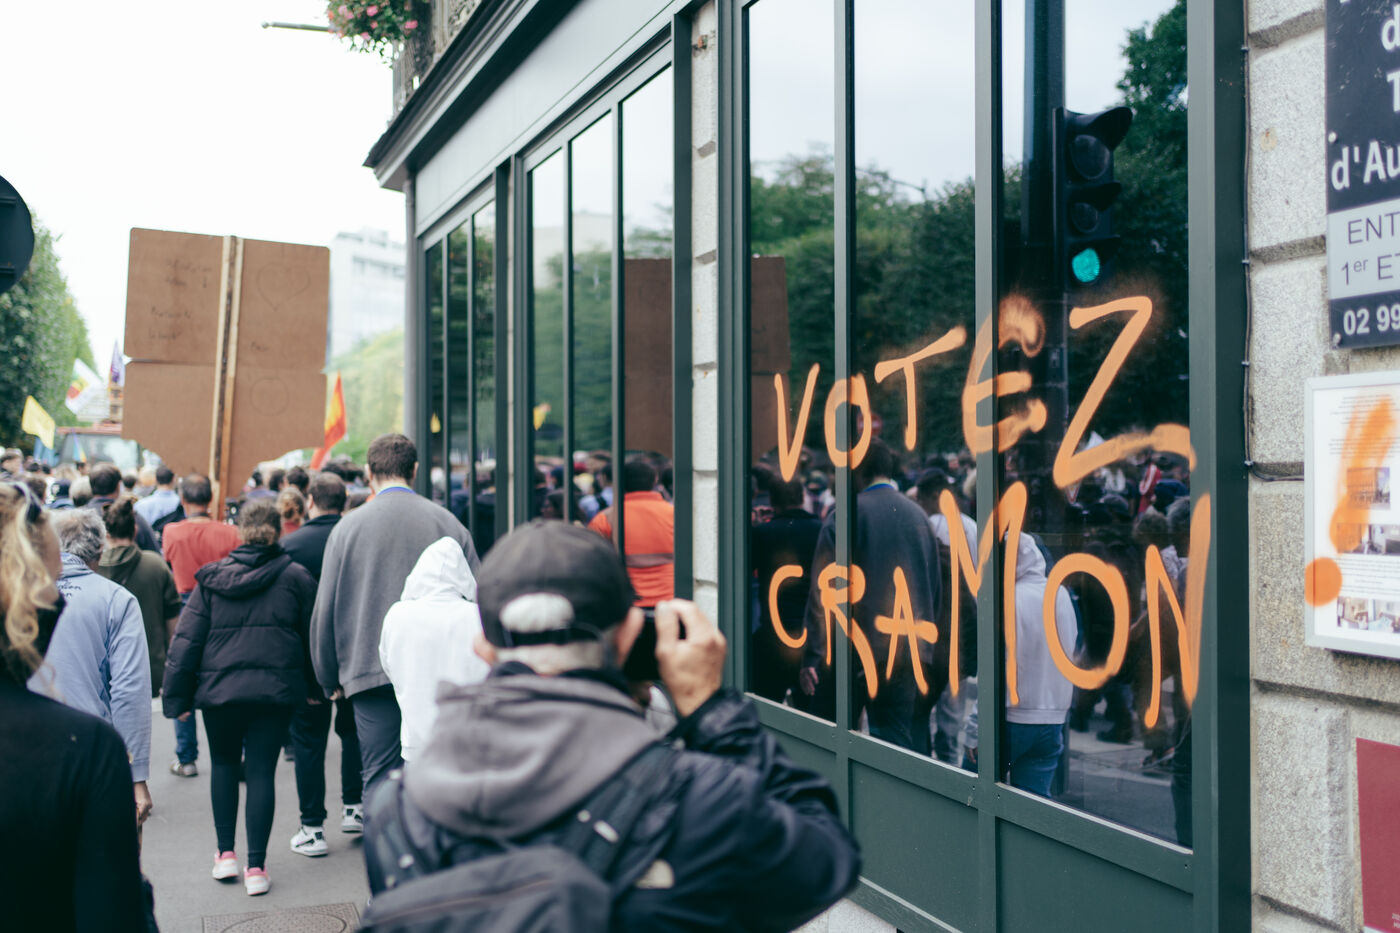 VOTEZ
CRAMON
d'Au
ENT
1er ET
02 99